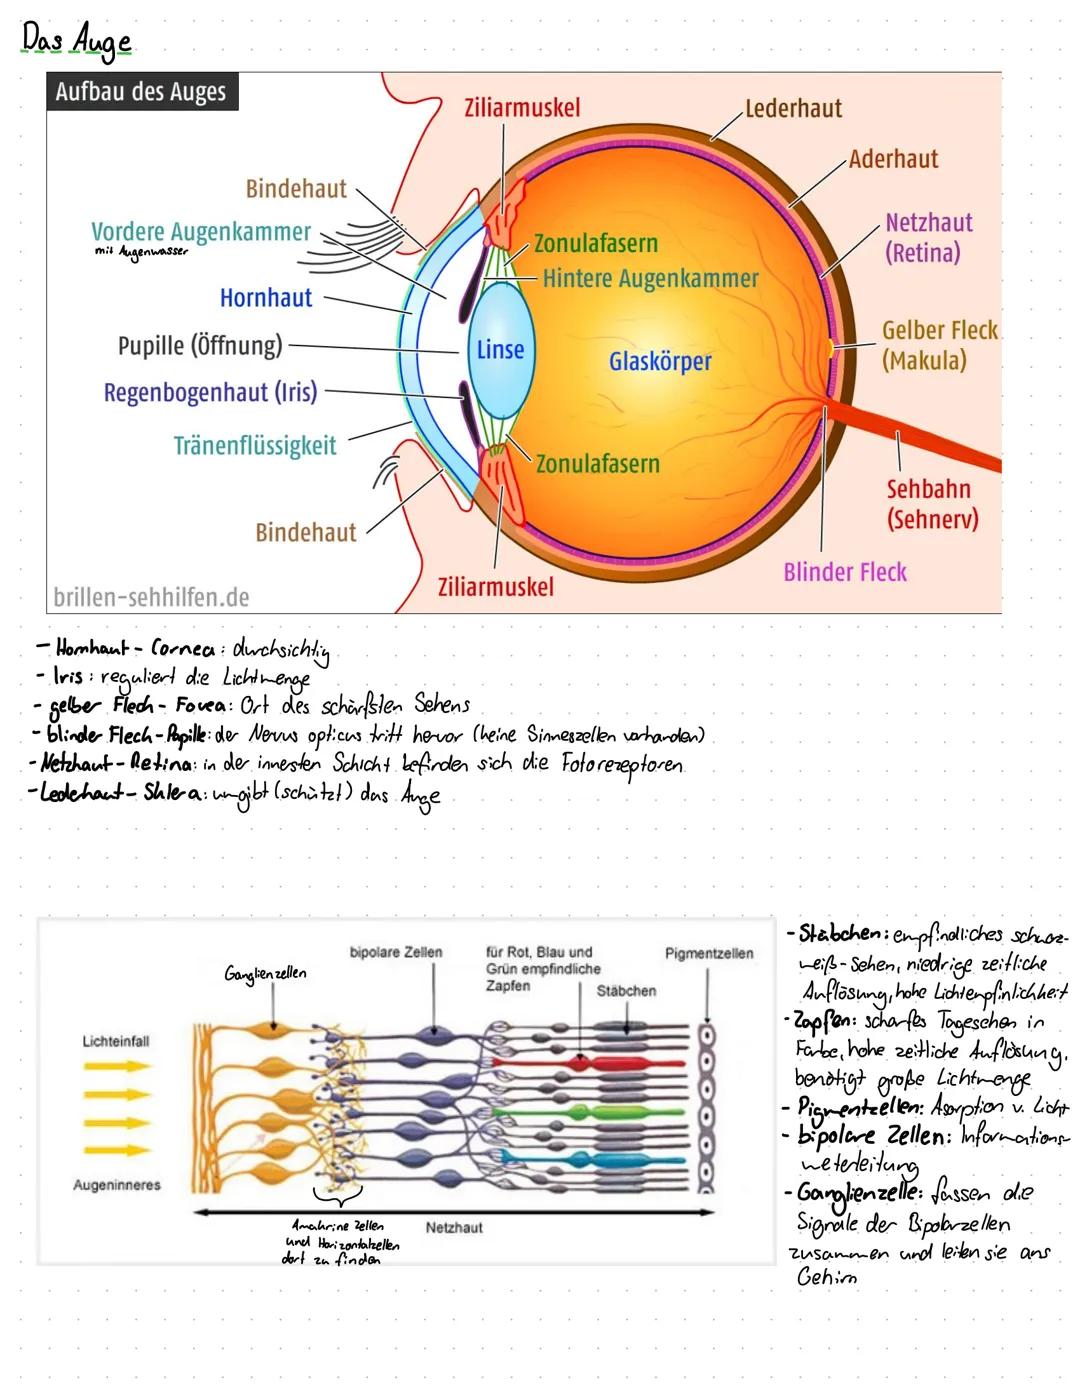 Das Auge
Aufbau des Auges
Ziliarmuskel
Lederhaut
Aderhaut
Bindehaut
Netzhaut
(Retina)
Vordere Augenkammer
mit Augenwasser
Zonulafasern
Hintere Augenkammer
Hornhaut
Gelber Fleck
(Makula)
Pupille (Öffnung)
Linse
Glaskörper
Regenbogenhaut (Iris)
Tränenflüssigkeit
Zonulafasern
Sehbahn
(Sehnerv)
Bindehaut
Blinder Fleck
Ziliarmuskel
brillen-sehhilfen.de
- Hornhaut - Cornea: durchsichtig
- Iris: reguliert die Lichtmenge
- gelber Flech - Fovea: Ort des schärfsten Sehens
- blinder Flech - Papille: der Nervus opticus tritt hervor (keine Sinneszellen vorhanden)
- Netzhaut - Retina: in der innersten Schicht befinden sich die Fotorezeptoren
- Lederhaut - Sklera: umgibt (schützt) das Auge
Ganglienzellen
bipolare Zellen
für Rot, Blau und
Grün empfindliche
Zapfen
Stäbchen
Pigmentzellen
Lichteinfall
Augeninneres
Netzhaut
Amakrine Zellen
und Horizontalzellen
dort zu finden
- Stäbchen: empfindliches schwarz-
weiß-Sehen, niedrige zeitliche
Auflösung, hohe Lichtempfinlichkeit
- Zapfen: scharfes Tagessehen in
Farbe, hohe zeitliche Auflösung,
benötigt große Lichtmenge
- Pigmentzellen: Asorption v. Licht
- bipolare Zellen: Informations-
weiterleitung
- Ganglienzelle: fassen die
Signale der Bipolarzellen
zusammen und leiten sie ans
Gehirn